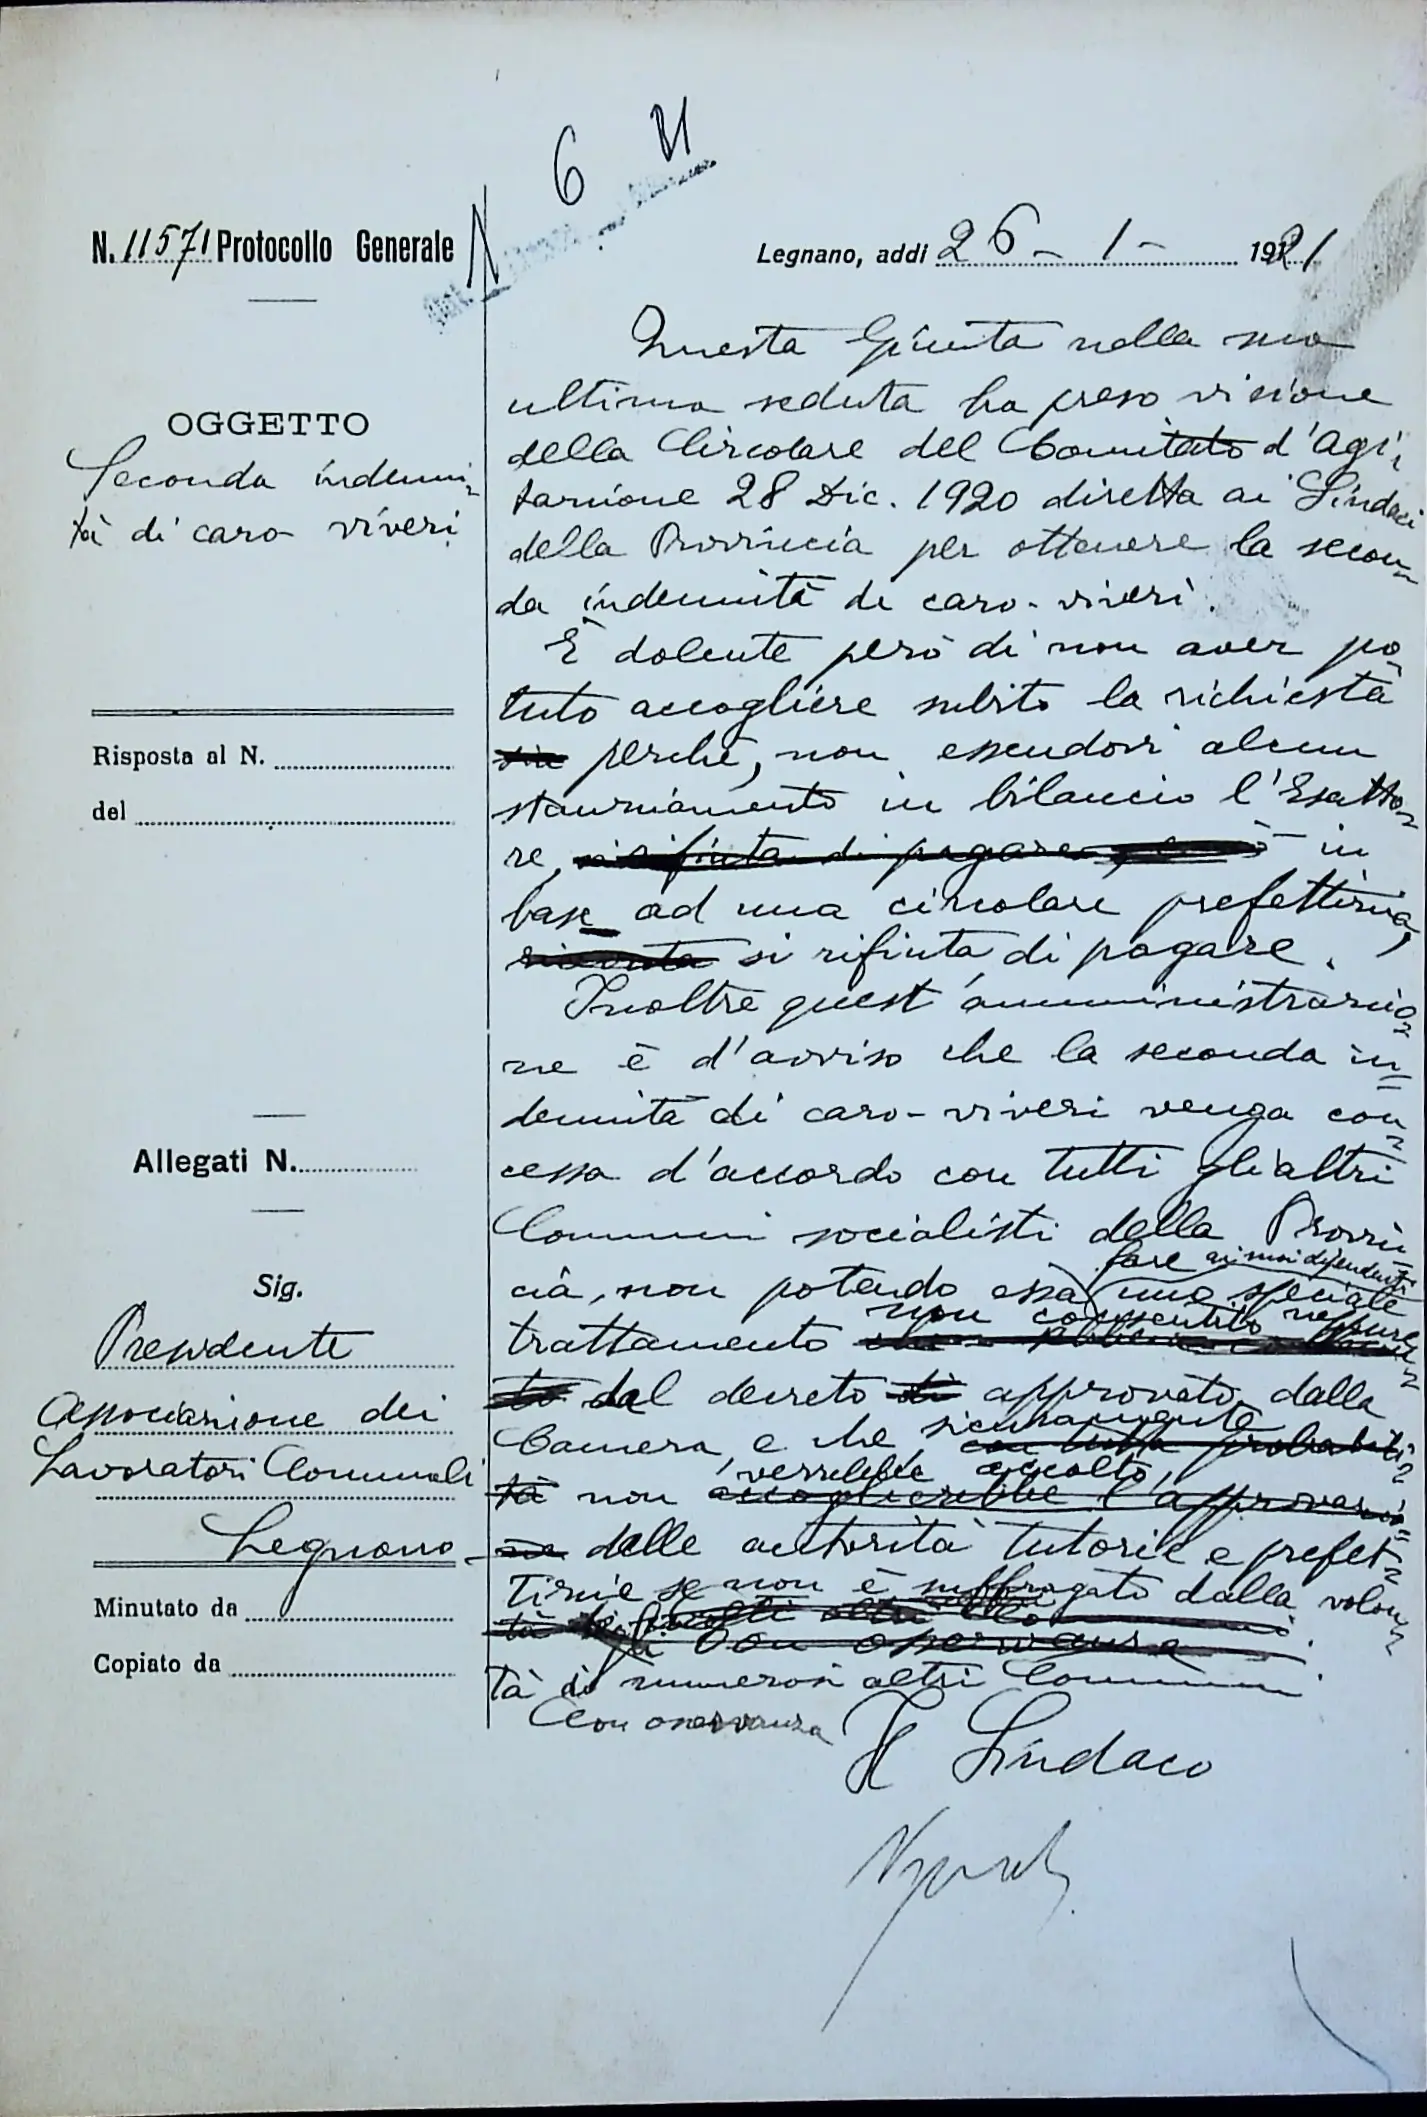 6 VI
N. 11571 Protocollo Generale
Legnano, addì 26 - 1 - 1921
OGGETTO
Seconda indenni-
tà di caro viveri
Risposta al N.
del
Allegati N.
Sig.
Presidente
Associazione dei
Lavoratori Comunali
Legnano
Minutato da
Copiato da
Questa Giunta nella sua
ultima seduta ha preso visione
della Circolare del Comitato d'Agi-
tazione 28 Dic. 1920 diretta ai Sindaci
della Provincia per ottenere la secon-
da indennità di caro-viveri.
È dolente però di non aver po-
tuto accogliere subito la richiesta
perchè, non essendovi alcun
stanziamento in bilancio l'Esatto-
re, si rifiuta di pagare in
base ad una circolare prefettizia,
ricevuta si rifiuta di pagare.
Inoltre quest'amministrazio-
ne è d'avviso che la seconda in-
dennità di caro-viveri venga con-
cessa d'accordo con tutti gli altri
Comuni socialisti della Provin-
cia, non potendo essa fare ai suoi dipendenti uno speciale
trattamento non consentito neppure
dal decreto approvato dalla
Camera, e che sicuramente con tutta probabili-
tà non verrebbe accolto, accoglierebbe l'approvazio-
ne delle autorità tutorie e prefet-
tizie se non è suffragato dalla volon-
Con osservanza
tà di numerosi altri Comuni.
Con osservanza
Il Sindaco